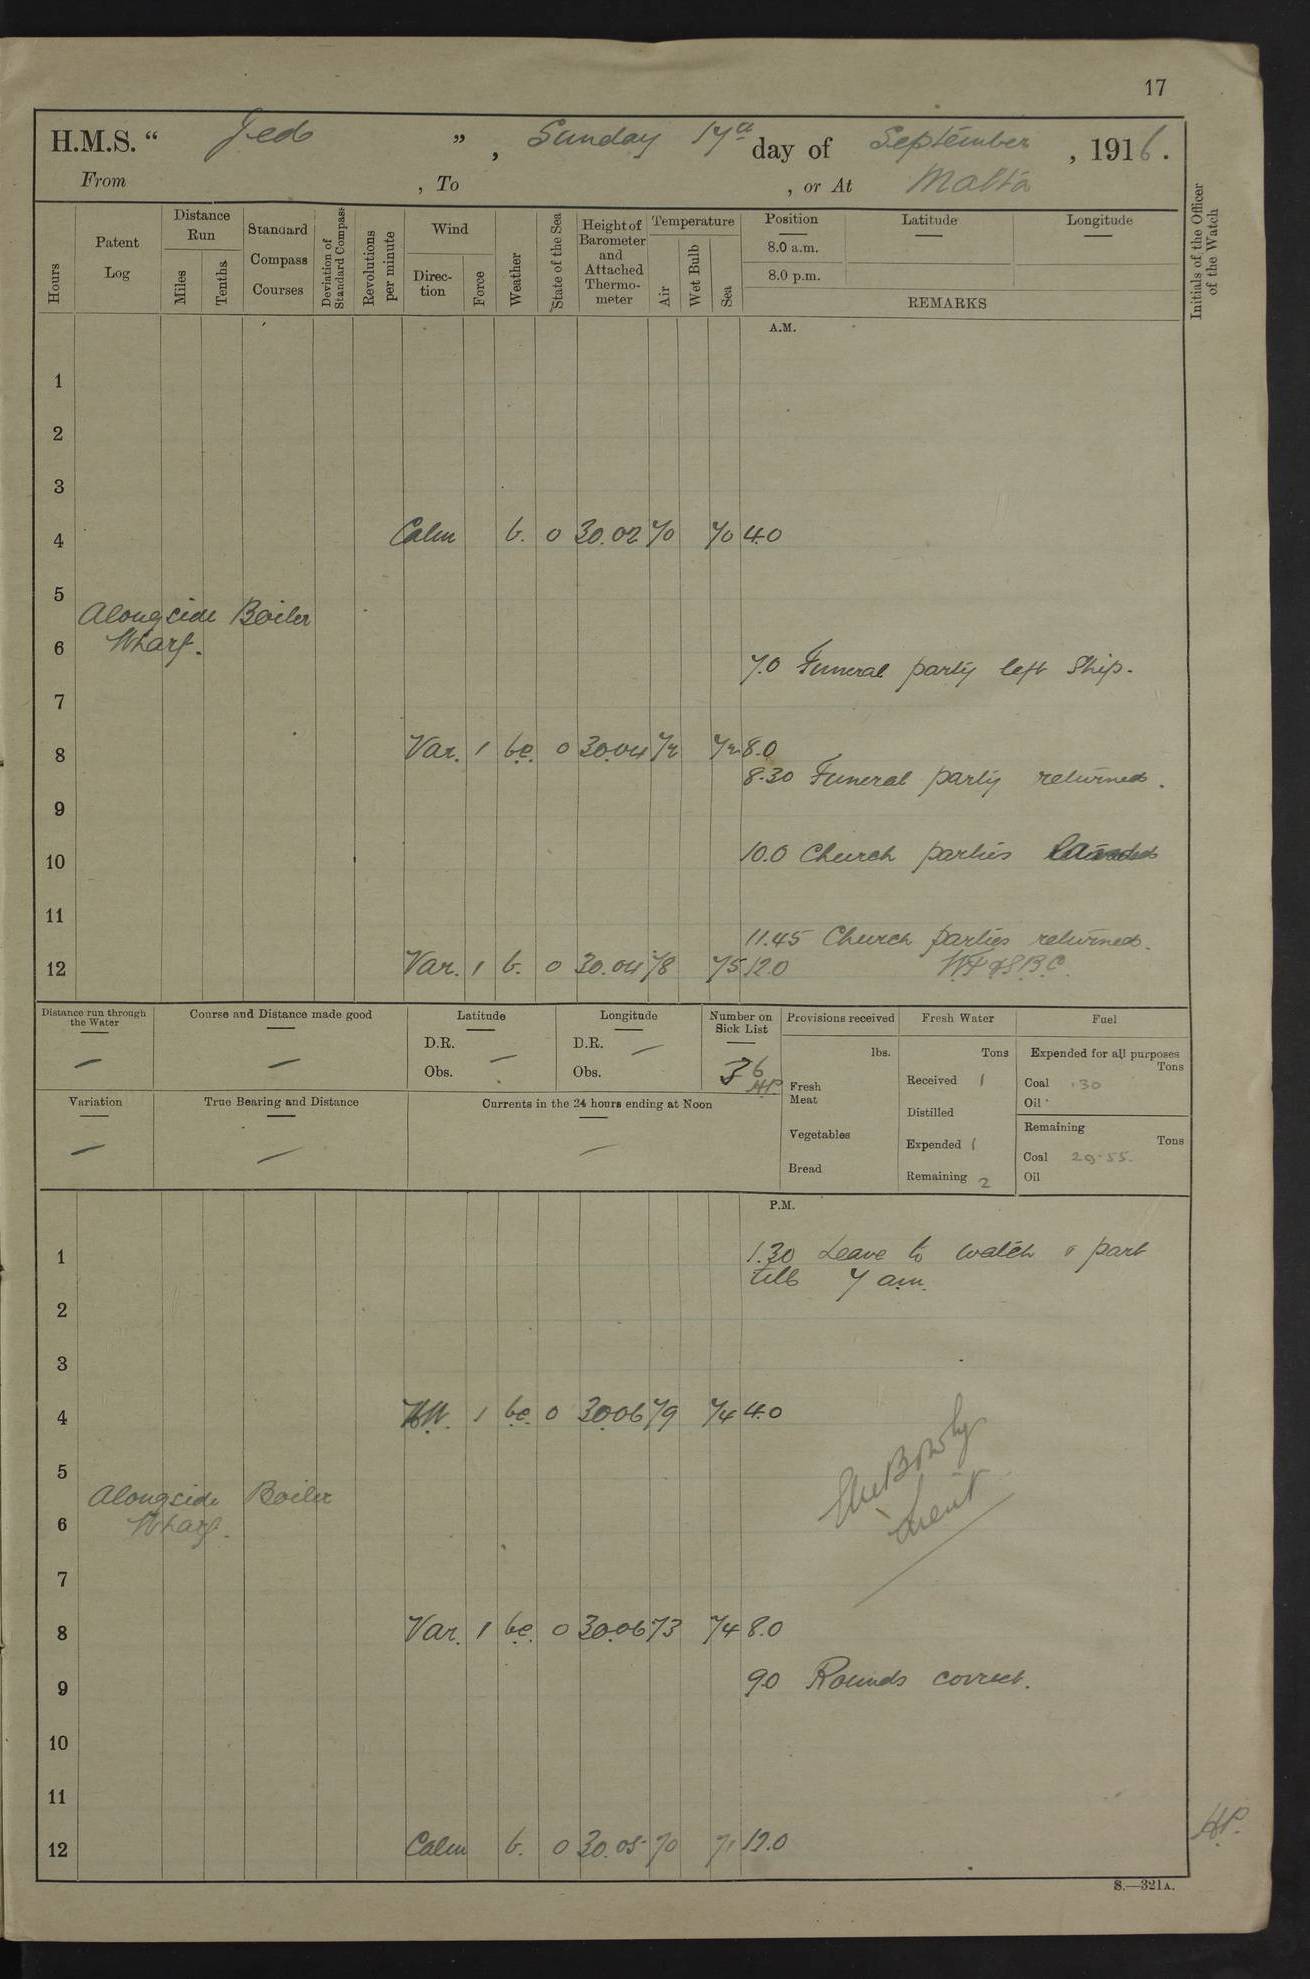 17
H.M.S. “ Jed ” , Sunday 17th day of September , 1916.
From , To , or At Malta
Hours
Patent Log
Distance Run
Miles
Tenths
Standard Compass Courses
Deviation of Standard Compass
Revolutions per minute
Wind
Direction
Force
Weather
State of the Sea
Height of Barometer and Attached Thermometer
Temperature
Air
Wet Bulb
Sea
Position Latitude Longitude
8.0 a.m.
8.0 p.m.
REMARKS
Initials of the Officer of the Watch
A.M.
1
2
3
4 Calm b. 0 30.02 70 70 4.0
5
Alongside Boiler
6 Wharf.
7.0 Funeral party left Ship.
7
8 Var. 1 b.c. 0 30.04 72 72 8.0
8.30 Funeral party returned.
9
10 10.0 Church parties landed
11
11.45 Church parties returned.
12 Var. 1 b. 0 30.04 78 75 12.0
Distance run through the Water —
Course and Distance made good —
Latitude
D.R. —
Obs.
Longitude
D.R. —
Obs.
Number on Sick List
6
HP
Variation —
True Bearing and Distance —
Currents in the 24 hours ending at Noon —
Provisions received
lbs.
Fresh Meat
Vegetables
Bread
Fresh Water
Tons
Received 1
Distilled
Expended 1
Remaining 2
Fuel
Expended for all purposes
Tons
Coal .30
Oil
Remaining
Tons
Coal 29.55
Oil
P.M.
1 1.30 Leave to watch & part
till 7 am.
2
3
4 1 b.c. 0 30.06 79 74 4.0
5
Alongside Boiler
6 Wharf.
Lieut
7
8 Var. 1 b.c. 0 30.06 73 74 8.0
9 9.0 Rounds correct.
10
11
HP.
12 Calm b. 0 30.05 70 71 12.0
S.—321A.